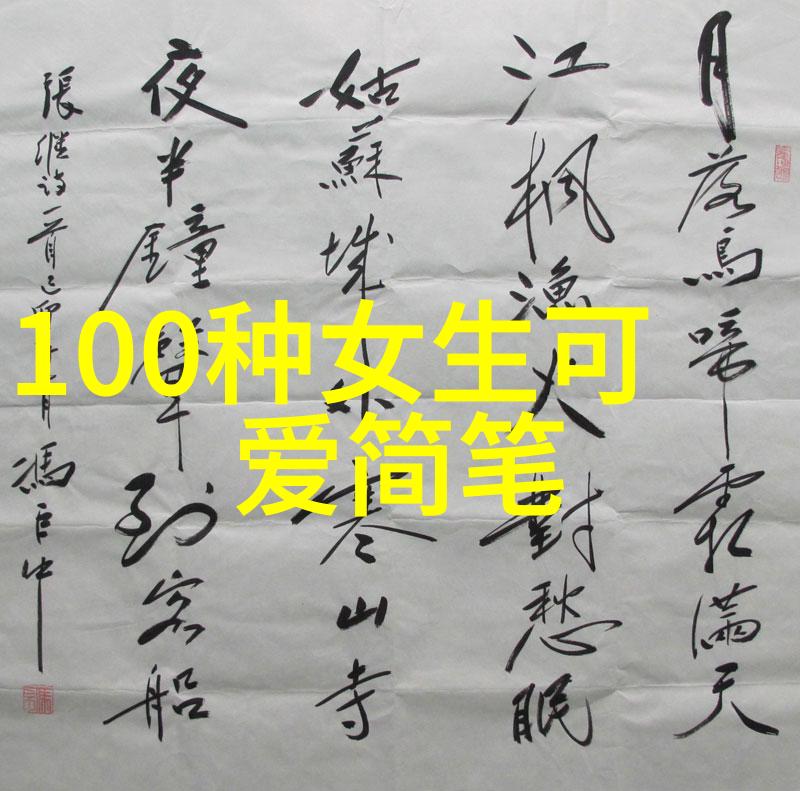 月落烏啼霜滿天
江枫漁火對愁眠
姑蘇城外寒山寺
夜半鐘聲到客船
張継詩一首己月馮
100种女生可
爱简笔